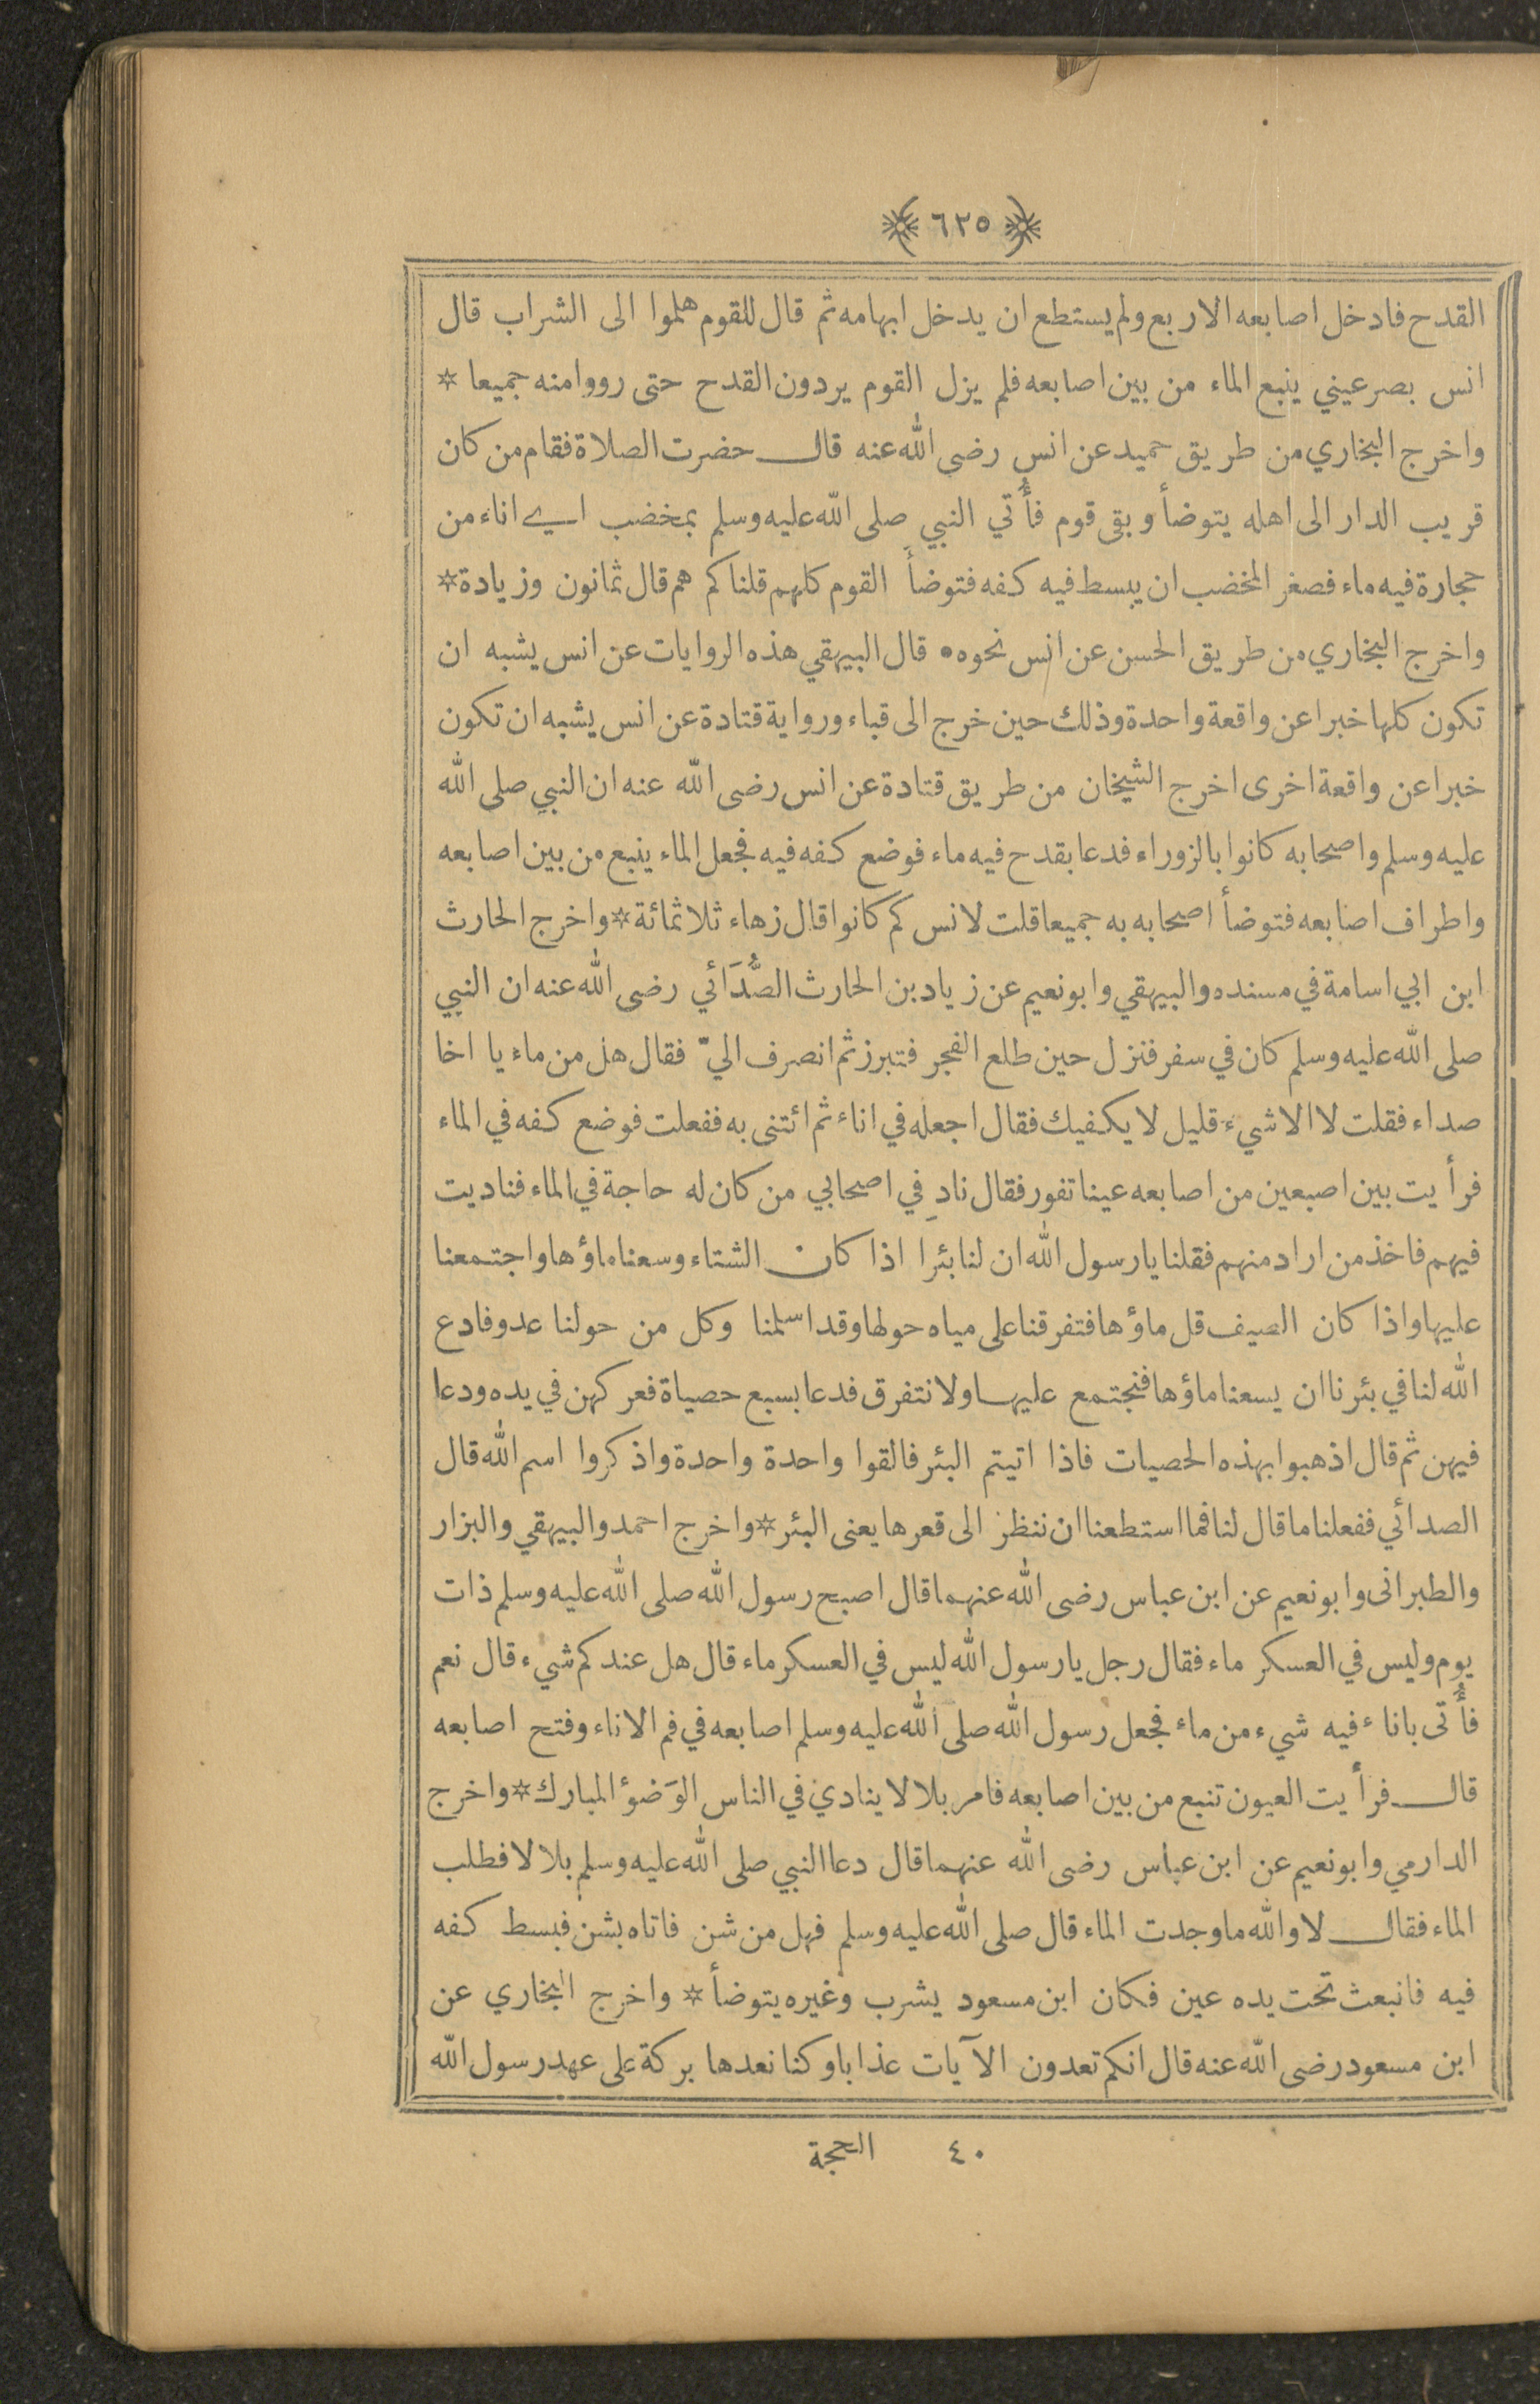 ٦٢٥
القدح فادخل اصابعه الاربع ولم يستطع ان يدخل ابهامه ثم قال للقوم هلموا الى الشراب قال
انس بصر عيني ينبع الماء من بين اصابعه فلم يزل القوم يردون القدح حتى رووا منه جميعا *
واخرج البخاري من طريق حميد عن انس رضى الله عنه قال حضرت الصلاة فقام من كان
قريب الدار الى اهله يتوضأ وبقى قوم فأُتي النبي صلى الله عليه وسلم بمخضب اي اناء من
حجارة فيه ماء فصغر المخضب ان يبسط فيه كفه فتوضأ القوم كلهم قلنا كم هم قال ثمانون وزيادة *
واخرج البخاري من طريق الحسن عن انس نحوه • قال البيهقي هذه الروايات عن انس يشبه ان
تكون كلها خبرا عن واقعة واحدة وذلك حين خرج الى قباء ورواية قتادة عن انس يشبه ان تكون
خبرا عن واقعة اخرى اخرج الشيخان من طريق قتادة عن انس رضى الله عنه ان النبي صلى الله
عليه وسلم واصحابه كانوا بالزوراء فدعا بقدح فيه ماء فوضع كفه فيه فجعل الماء ينبع من بين اصابعه
واطراف اصابعه فتوضأ اصحابه به جميعا قلت لانس كم كانوا قال زهاء ثلاثمائة * واخرج الحارث
ابن ابي اسامة في مسنده والبيهقي وابو نعيم عن زياد بن الحارث الصُّدَائي رضى الله عنه ان النبي
صلى الله عليه وسلم كان في سفر فنزل حين طلع الفجر فتبرز ثم انصرف اليّ فقال هل من ماء يا اخا
صداء فقلت لا الا شيء قليل لا يكفيك فقال اجعله في اناء ثم ائتنى به ففعلت فوضع كفه في الماء
فرأيت بين اصبعين من اصابعه عينا تفور فقال نادِ في اصحابي من كان له حاجة في الماء فناديت
فيهم فاخذ من اراد منهم فقلنا يا رسول الله ان لنا بئرا اذا كان الشتاء وسعنا ماؤها واجتمعنا
عليها واذا كان الصيف قل ماؤها فتفرقنا على مياه حولها وقد اسلمنا وكل من حولنا عدو فادع
الله لنا في بئرنا ان يسعنا ماؤها فنجتمع عليها ولا نتفرق فدعا بسبع حصياة فعركهن في يده ودعا
فيهن ثم قال اذهبوا بهذه الحصيات فاذا اتيتم البئر فالقوا واحدة واحدة واذكروا اسم الله قال
الصدائي ففعلنا ما قال لنا فما استطعنا ان ننظر الى قعرها يعنى البئر * واخرج احمد والبيهقي والبزار
والطبرانى وابو نعيم عن ابن عباس رضى الله عنهما قال اصبح رسول الله صلى الله عليه وسلم ذات
يوم وليس في العسكر ماء فقال رجل يا رسول الله ليس في العسكر ماء قال هل عندكم شيء قال نعم
فأُتى باناء فيه شيء من ماء فجعل رسول الله صلى الله عليه وسلم اصابعه في فم الاناء وفتح اصابعه
قال فرأيت العيون تنبع من بين اصابعه فامر بلالا ينادي في الناس الوَضوُء المبارك * واخرج
الدارمي وابو نعيم عن ابن عباس رضى الله عنهما قال دعا النبي صلى الله عليه وسلم بلالا فطلب
الماء فقال لا والله ما وجدت الماء قال صلى الله عليه وسلم فهل من شن فاتاه بشن فبسط كفه
فيه فانبعث تحت يده عين فكان ابن مسعود يشرب وغيره يتوضأ * واخرج البخاري عن
ابن مسعود رضى الله عنه قال انكم تعدون الآيات عذابا وكنا نعدها بركة على عهد رسول الله
٤٠ الحجة